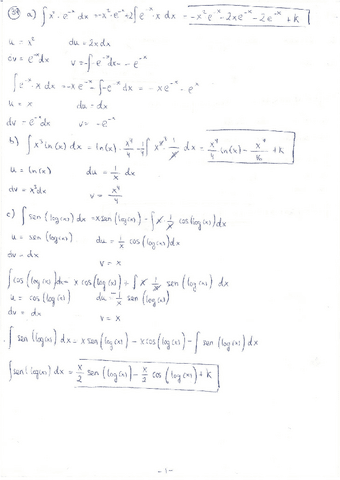 39 a) ∫ x² · e^-x dx = -x² · e^-x + 2 ∫ e^-x · x dx = -x² e^-x - 2x e^-x - 2 e^-x + k
u = x² du = 2x dx
dv = e^-x dx v = -∫ -e^-x dx = -e^-x
∫ e^-x · x dx = -x e^-x - ∫ -e^-x dx = -x e^-x - e^-x
u = x du = dx
dv = e^-x dx v = -e^-x
b) ∫ x³ ln(x) dx = ln(x) · x⁴/4 - 1/4 ∫ x⁴ · 1/x dx = x⁴/4 ln(x) - x⁴/16 + k
u = ln(x) du = 1/x dx
dv = x³ dx v = x⁴/4
c) ∫ sen (log(x)) dx = x sen (log(x)) - ∫ x 1/x cos (log(x)) dx
u = sen (log(x)) du = 1/x cos (log(x))
dv = dx v = x
∫ cos (log(x)) dx = x cos (log(x)) + ∫ x 1/x sen (log(x)) dx
u = cos (log(x)) du = -1/x sen (log(x))
dv = dx v = x
∫ sen (log(x)) dx = x sen (log(x)) - x cos (log(x)) - ∫ sen (log(x)) dx
∫ sen (log(x)) dx = x/2 sen (log(x)) - x/2 cos (log(x)) + k
-1-